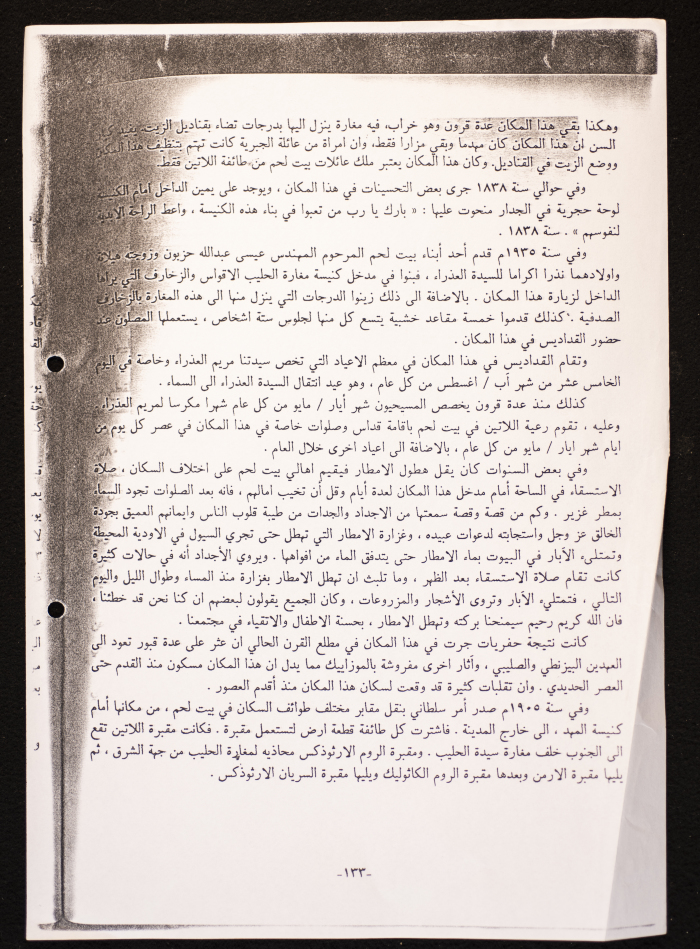 وهكذا بقي هذا المكان عدة قرون وهو خراب، فيه مغارة ينزل اليها بدرجات تضاء بقناديل الزيت. يفيد
السن ان هذا المكان كان مهدما وبقي مزارا فقط، وان امراة من عائلة الجبرية كانت تهتم بتنظيف هذا المكان
ووضع الزيت في القناديل. وكان هذا المكان يعتبر ملك عائلات بيت لحم من طائفة اللاتين فقط.
وفي حوالي سنة ١٨٣٨ جرى بعض التحسينات في هذا المكان ، ويوجد على يمين الداخل امام الكنيسة
لوحة حجرية في الجدار منحوت عليها : « بارك يا رب من تعبوا في بناء هذه الكنيسة ، واعط الراحة الابدية
لنفوسهم » . سنة ١٨٣٨ .
وفي سنة ١٩٣٥م قدم أحد أبناء بيت لحم المرحوم المهندس عيسى عبدالله حزبون وزوجته هيلانة
واولادهما نذرا اكراما للسيدة العذراء ، فبنوا في مدخل كنيسة مغارة الحليب الاقواس والزخارف التي يراها
الداخل لزيارة هذا المكان . بالاضافة الى ذلك زينوا الدرجات التي ينزل منها الى هذه المغارة بالزخارف
الصدفية . كذلك قدموا خمسة مقاعد خشبية يتسع كل منها لجلوس ستة اشخاص ، يستعملها المصلون عند
حضور القداديس في هذا المكان .
وتقام القداديس في هذا المكان في معظم الاعياد التي تخص سيدتنا مريم العذراء وخاصة في اليوم
الخامس عشر من شهر آب / اغسطس من كل عام ، وهو عيد انتقال السيدة العذراء الى السماء .
كذلك منذ عدة قرون يخصص المسيحيون شهر أيار / مايو من كل عام شهرا مكرسا لمريم العذراء .
وعليه ، تقوم رعية اللاتين في بيت لحم باقامة قداس وصلوات خاصة في هذا المكان في عصر كل يوم من
ايام شهر ايار / مايو من كل عام ، بالاضافة الى اعياد اخرى خلال العام .
وفي بعض السنوات كان يقل هطول الامطار فيقيم اهالي بيت لحم على اختلاف السكان ، صلاة
الاستسقاء في الساحة أمام مدخل هذا المكان لعدة أيام وقل أن تخيب امالهم ، فانه بعد الصلوات تجود السماء
بمطر غزير . وكم من قصة وقصة سمعتها من الاجداد والجدات من طيبة قلوب الناس وايمانهم العميق بجودة
الخالق عز وجل واستجابته لدعوات عبيده ، وغزارة الامطار التي تهطل حتى تجري السيول في الاودية المحيطة
وتمتليء الآبار في البيوت بماء الامطار حتى يتدفق الماء من افواهها . ويروي الأجداد أنه في حالات كثيرة
كانت تقام صلاة الاستسقاء بعد الظهر ، وما تلبث ان تهطل الامطار بغزارة منذ المساء وطوال الليل واليوم
التالي ، فتمتليء الآبار وتروى الأشجار والمزروعات ، وكان الجميع يقولون لبعضهم ان كنا نحن قد خطئنا ،
فان الله كريم رحيم سيمنحنا بركته وتهطل الامطار ، بحسنة الاطفال والاتقياء في مجتمعنا .
كانت نتيجة حفريات جرت في هذا المكان في مطلع القرن الحالي ان عثر على عدة قبور تعود الى
العهدين البيزنطي والصليبي ، وآثار اخرى مفروشة بالموزاييك مما يدل ان هذا المكان مسكون منذ القدم حتى
العصر الحديدي . وان تقلبات كثيرة قد وقعت لسكان هذا المكان منذ أقدم العصور .
وفي سنة ١٩٠٥م صدر أمر سلطاني بنقل مقابر مختلف طوائف السكان في بيت لحم ، من مكانها أمام
كنيسة المهد ، الى خارج المدينة . فاشترت كل طائفة قطعة ارض لتستعمل مقبرة . فكانت مقبرة اللاتين تقع
الى الجنوب خلف مغارة سيدة الحليب . ومقبرة الروم الارثوذكس محاذيه لمغارة الحليب من جهة الشرق ، ثم
يليها مقبرة الارمن وبعدها مقبرة الروم الكاثوليك ويليها مقبرة السريان الارثوذكس .
-١٣٣-